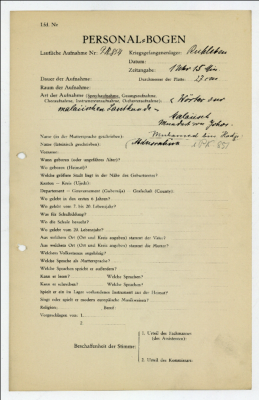 Lfd. Nr
PERSONAL=BOGEN
Lautliche Aufnahme Nr. Kriegsgefangenenlager: Ruhleben
Datum:
Zeitangabe: 1 Uhr 15 Min
Dauer der Aufnahme: Durchmesser der Platte: 27 cm
Raum der Aufnahme:
Art der Aufnahme (Sprechaufnahme, Gesangsaufnahme,
Choraufnahme, Instrumentenaufnahme, Orchesteraufnahme): Wörter zur
malaiischen Lautkunde
Malaiisch
Mundart von Johor
Name (in der Muttersprache geschrieben): Muhammad bin Hadji
Name (lateinisch geschrieben):
Vorname:
Wann geboren (oder ungefähres Alter)?
Wo geboren (Heimat)?
Welche größere Stadt liegt in der Nähe des Geburtsortes?
Kanton — Kreis (Ujedz):
Departement — Gouvernement (Gubernija) — Grafschaft (County):
Wo gelebt in den ersten 6 Jahren?
Wo gelebt vom 7. bis 20. Lebensjahr?
Was für Schulbildung?
Wo die Schule besucht?
Wo gelebt vom 20. Lebensjahr?
Aus welchem Ort (Ort und Kreis angeben) stammt der Vater?
Aus welchem Ort (Ort und Kreis angeben) stammt die Mutter?
Welchem Volksstamm angehörig?
Welche Sprache als Muttersprache?
Welche Sprachen spricht er außerdem?
Kann er lesen? Welche Sprachen?
Kann er schreiben? Welche Sprachen?
Spielt er ein im Lager vorhandenes Instrument aus der Heimat?
Singt oder spielt er modern europäische Musikweisen?
Religion: Beruf:
Vorgeschlagen von: 1.
2.
Beschaffenheit der Stimme:
1. Urteil des Fachmannes
(des Assistenten):
2. Urteil des Kommissars: